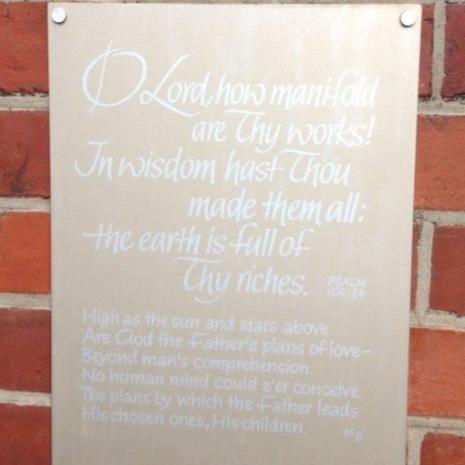 O Lord, how manifold
are Thy works!
In wisdom hast Thou
made them all:
the earth is full of
Thy riches.
PSALM
104:24
High as the sun and stars above
Are God the Father's plans of love–
Beyond man's comprehension.
No human mind could e'er conceive
The plans by which the Father leads
His chosen ones, His children.
MB